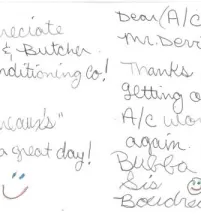 reciate
& Butcher
nditioning Co!
reaux's"
a great day!
Dear (A/C
Mr. Devi
Thanks
getting o
A/C wor
again.
Bubba
Sis
Boudre